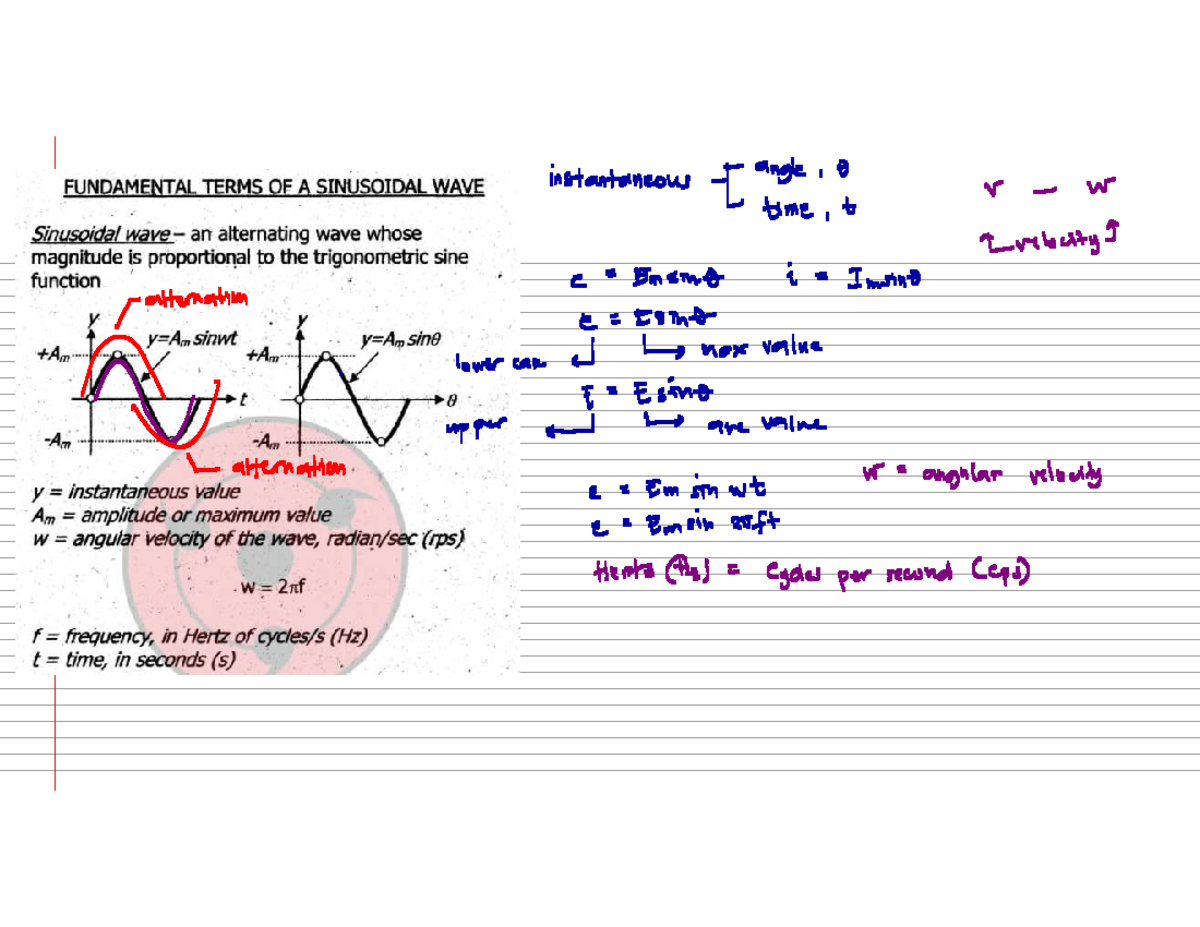 FUNDAMENTAL TERMS OF A SINUSOIDAL WAVE
Sinusoidal wave – an alternating wave whose
magnitude is proportional to the trigonometric sine
function
alternation
y
y=Aₘ sinwt
+Aₘ
t
-Aₘ
alternation
y
y=Aₘ sinθ
+Aₘ
θ
-Aₘ
y = instantaneous value
Aₘ = amplitude or maximum value
w = angular velocity of the wave, radian/sec (rps)
w = 2πf
f = frequency, in Hertz of cycles/s (Hz)
t = time, in seconds (s)
instantaneous
angle, θ
time, t
v – w
velocity
e = Em sinθ i = Im sinθ
e = E sinθ
lower case
max value
E sinθ
upper
value
e = Em sin wt
e = Em sin 2πft
w = angular velocity
Hertz (Hz) = cycles per second (cps)